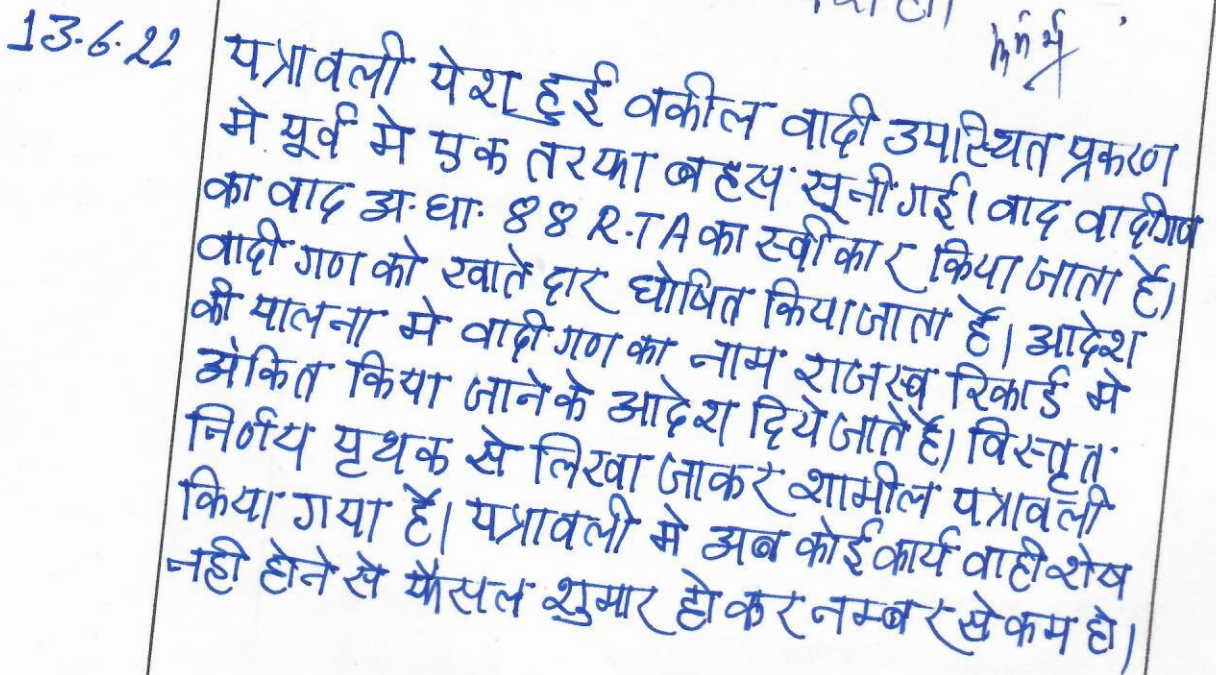 13.6.22
पत्रावली पेश हुई वकील वादी उपस्थित प्रकरण
मे पूर्व मे एक तरफा बहस सूनी गई। वाद वादीगण
का वाद अ.धा. 88 R.T A का स्वीकार किया जाता है।
वादी गण को खातेदार घोषित किया जाता है। आदेश
की पालना मे वादी गण का नाम राजस्व रिकार्ड मे
अंकित किया जाने के आदेश दिये जाते है। विस्तृत
निर्णय पृथक से लिखा जाकर शामील पत्रावली
किया गया है। पत्रावली मे अब कोई कार्य वाही शेष
नही होने से फैसल शुमार हो कर नम्बर से कम हो।